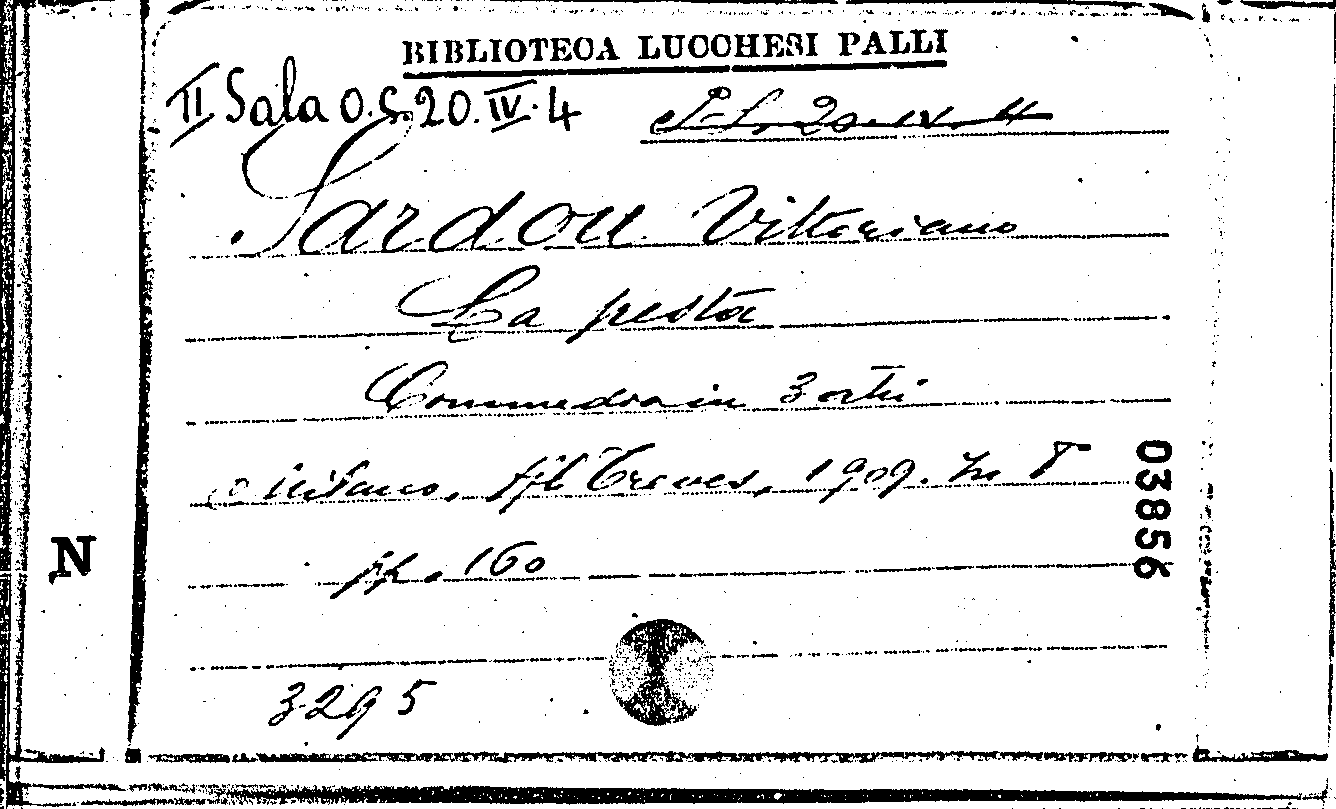 BIBLIOTECA LUCCHESI PALLI
II Sala O.S. 20. IV. 4
20. IV. 4
Sardou Vittoriano
La pesta
Commedia in 3 atti
Milano, fjl Treves, 1909. In 
pp. 160
3295
03856
N